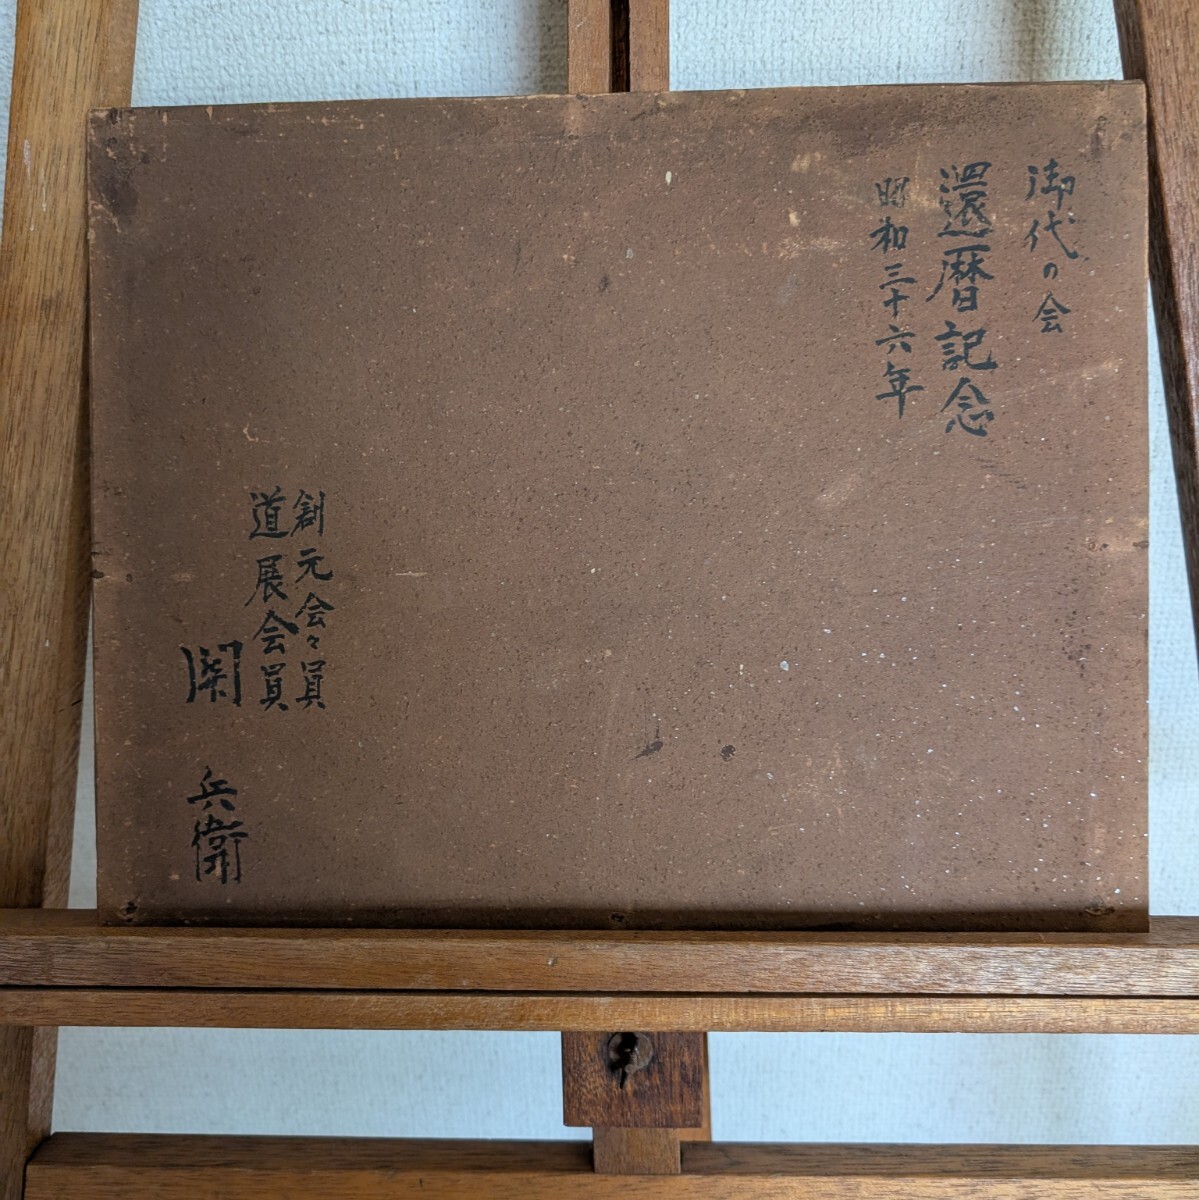 御代の会
還暦記念
昭和三十六年
創元会々員
道展会員
関 兵衛